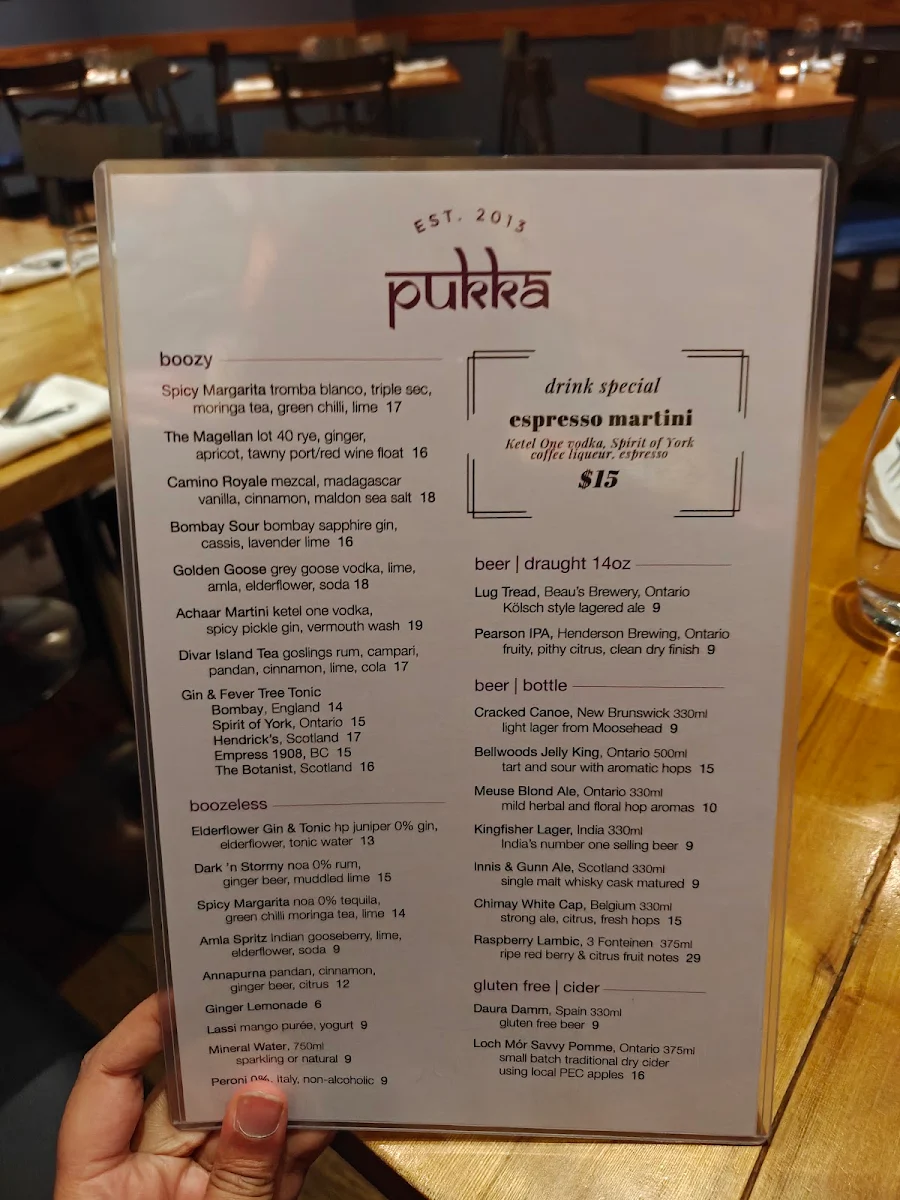 EST. 2013
pukka
boozy
Spicy Margarita tromba blanco, triple sec,
moringa tea, green chilli, lime 17
The Magellan lot 40 rye, ginger,
apricot, tawny port/red wine float 16
Camino Royale mezcal, madagascar
vanilla, cinnamon, maldon sea salt 18
Bombay Sour bombay sapphire gin,
cassis, lavender lime 16
Golden Goose grey goose vodka, lime,
amla, elderflower, soda 18
Achaar Martini ketel one vodka,
spicy pickle gin, vermouth wash 19
Divar Island Tea goslings rum, campari,
pandan, cinnamon, lime, cola 17
Gin & Fever Tree Tonic
Bombay, England 14
Spirit of York, Ontario 15
Hendrick's, Scotland 17
Empress 1908, BC 15
The Botanist, Scotland 16
boozeless
Elderflower Gin & Tonic hp juniper 0% gin,
elderflower, tonic water 13
Dark 'n Stormy noa 0% rum,
ginger beer, muddled lime 15
Spicy Margarita noa 0% tequila,
green chilli moringa tea, lime 14
Amla Spritz Indian gooseberry, lime,
elderflower, soda 9
Annapurna pandan, cinnamon,
ginger beer, citrus 12
Ginger Lemonade 6
Lassi mango purée, yogurt 9
Mineral Water, 750ml
sparkling or natural 9
Peroni 0%, Italy, non-alcoholic 9
drink special
espresso martini
Ketel One vodka, Spirit of York
coffee liqueur, espresso
$15
beer | draught 14oz
Lug Tread, Beau's Brewery, Ontario
Kölsch style lagered ale 9
Pearson IPA, Henderson Brewing, Ontario
fruity, pithy citrus, clean dry finish 9
beer | bottle
Cracked Canoe, New Brunswick 330ml
light lager from Moosehead 9
Bellwoods Jelly King, Ontario 500ml
tart and sour with aromatic hops 15
Meuse Blond Ale, Ontario 330ml
mild herbal and floral hop aromas 10
Kingfisher Lager, India 330ml
India's number one selling beer 9
Innis & Gunn Ale, Scotland 330ml
single malt whisky cask matured 9
Chimay White Cap, Belgium 330ml
strong ale, citrus, fresh hops 15
Raspberry Lambic, 3 Fonteinen 375ml
ripe red berry & citrus fruit notes 29
gluten free | cider
Daura Damm, Spain 330ml
gluten free beer 9
Loch Mór Savvy Pomme, Ontario 375ml
small batch traditional dry cider
using local PEC apples 16